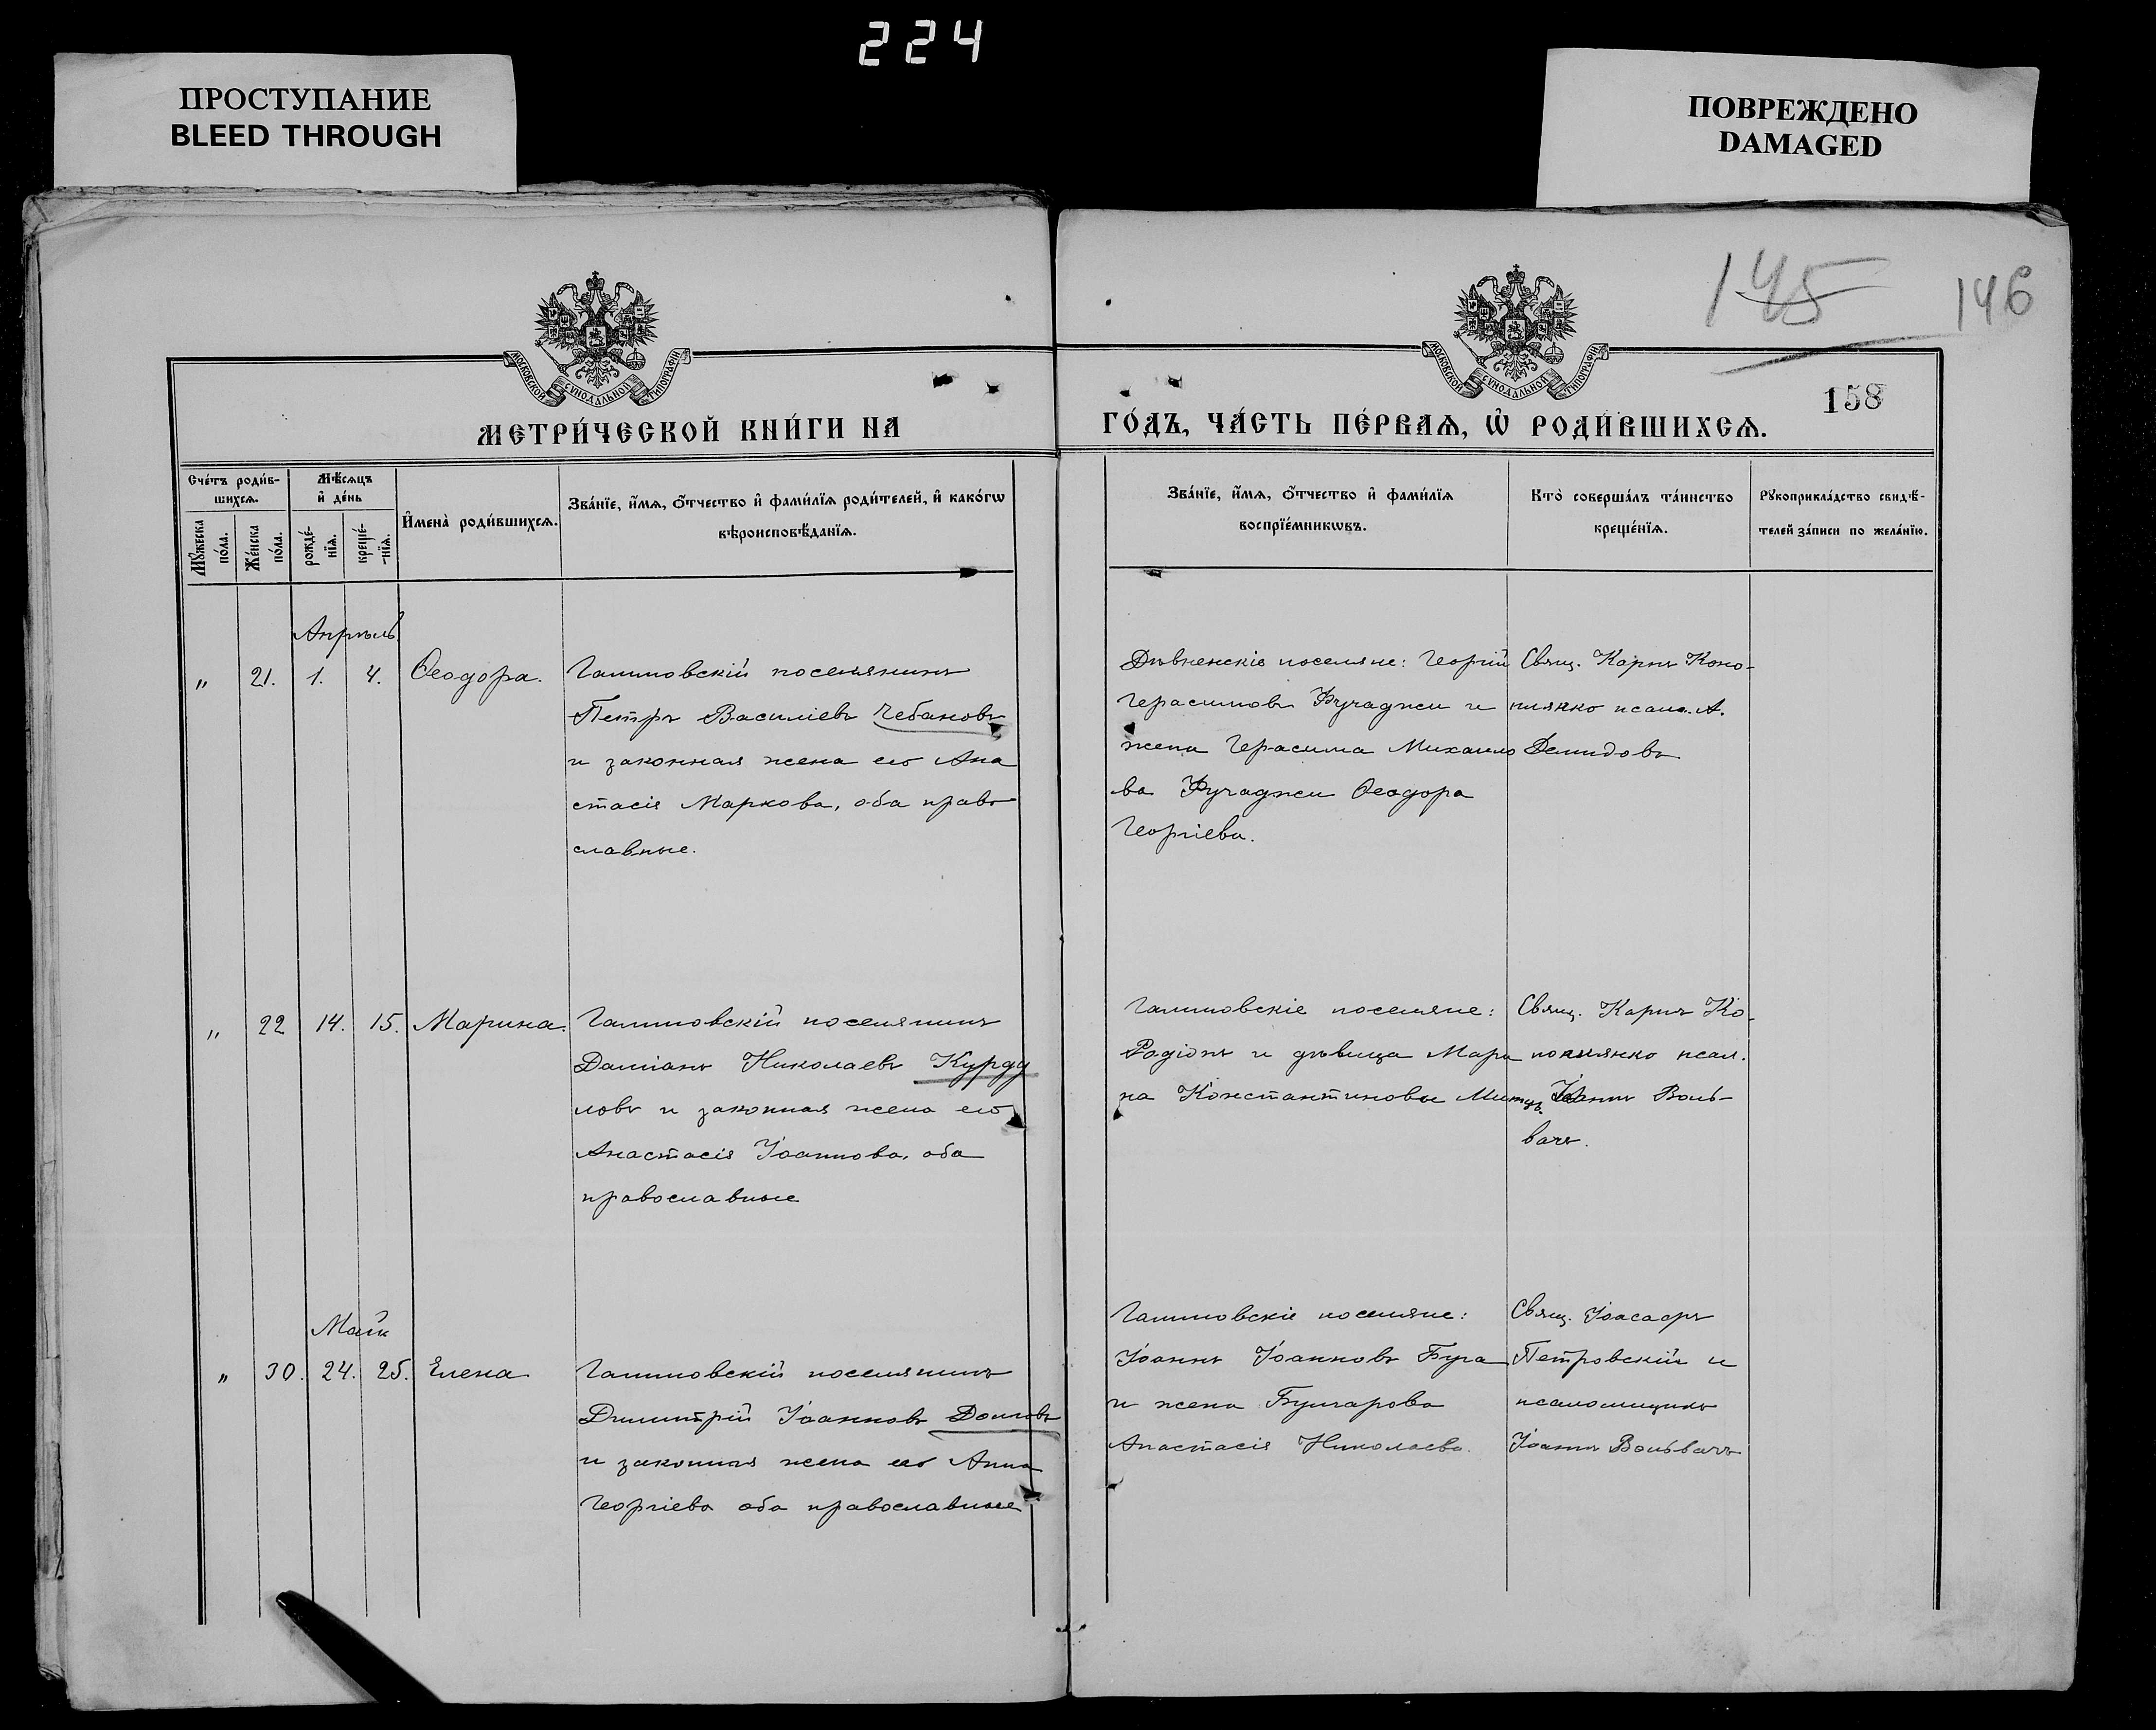 224
ПРОСТУПАНИЕ
BLEED THROUGH
ПОВРЕЖДЕНО
DAMAGED
145
146
158
МОСКОВСКОЙ СУНОДАЛЬНОЙ ТИПОГРАФІИ
МОСКОВСКОЙ СУНОДАЛЬНОЙ ТИПОГРАФІИ
МЕТРИ́ЧЕСКОЙ КНИ́ГИ НА
ГО́ДЪ, ЧА́СТЬ ПЕ́РВАѦ, Ѡ҆ РОДИ́ВШИХСѦ.
Сче́тъ роди́в-
шихсѧ.
Мѣ́сѧцъ
и҆ де́нь
Мꙋ́жеска
по́ла.
Же́нска
по́ла.
рожде́-
нїѧ.
креще́-
нїѧ.
И҆мена̀ роди́вшихсѧ.
Зва́нїе, и҆́мѧ, ѻ҆́тчество и҆ фами́лїѧ роди́телей, и҆ како́гѡ
вѣроисповѣ́данїѧ.
Зва́нїе, и҆́мѧ, ѻ҆́тчество и҆ фами́лїѧ
воспрїе́мникѡвъ.
Кто̀ соверша́лъ та́инство
креще́нїѧ.
Рꙋкоприкла́дство свидѣ́-
телей за́писи по жела́нїю.
Апрѣль
„ 21. 1. 4. Ѳеодора.
поселянинъ
Петръ Василіевъ Чебановъ
и законная жена его Ана
стасія Маркова, оба право
славные.
поселяне: Георгій
Герасимовъ Фучаджи и
жена Герасима Михаило
ва Фучаджи Ѳеодора
Георгіева.
Свящ. Карпъ Коно-
плянко псал. А.
Демидовъ
„ 22 14. 15. Марина.
поселянинъ
Даміанъ Николаевъ Курду
ловъ и законная жена его
Анастасія Іоаннова, оба
православные
поселяне:
Радіонъ и дѣвица Мари
на Константиновы
Свящ. Карпъ Ко-
ноплянко псал.
Іоаннъ Воль-
вачъ.
Май
„ 30. 24. 25. Елена
поселянинъ
Димитрій Іоанновъ
и законная жена его Анна
Георгіева оба православные
поселяне:
Іоаннъ Іоанновъ Буга
и жена Булгарова
Анастасія Николаева.
Свящ. Іоасафъ
Петровскій и
псаломщикъ
Іоаннъ Вольвачъ